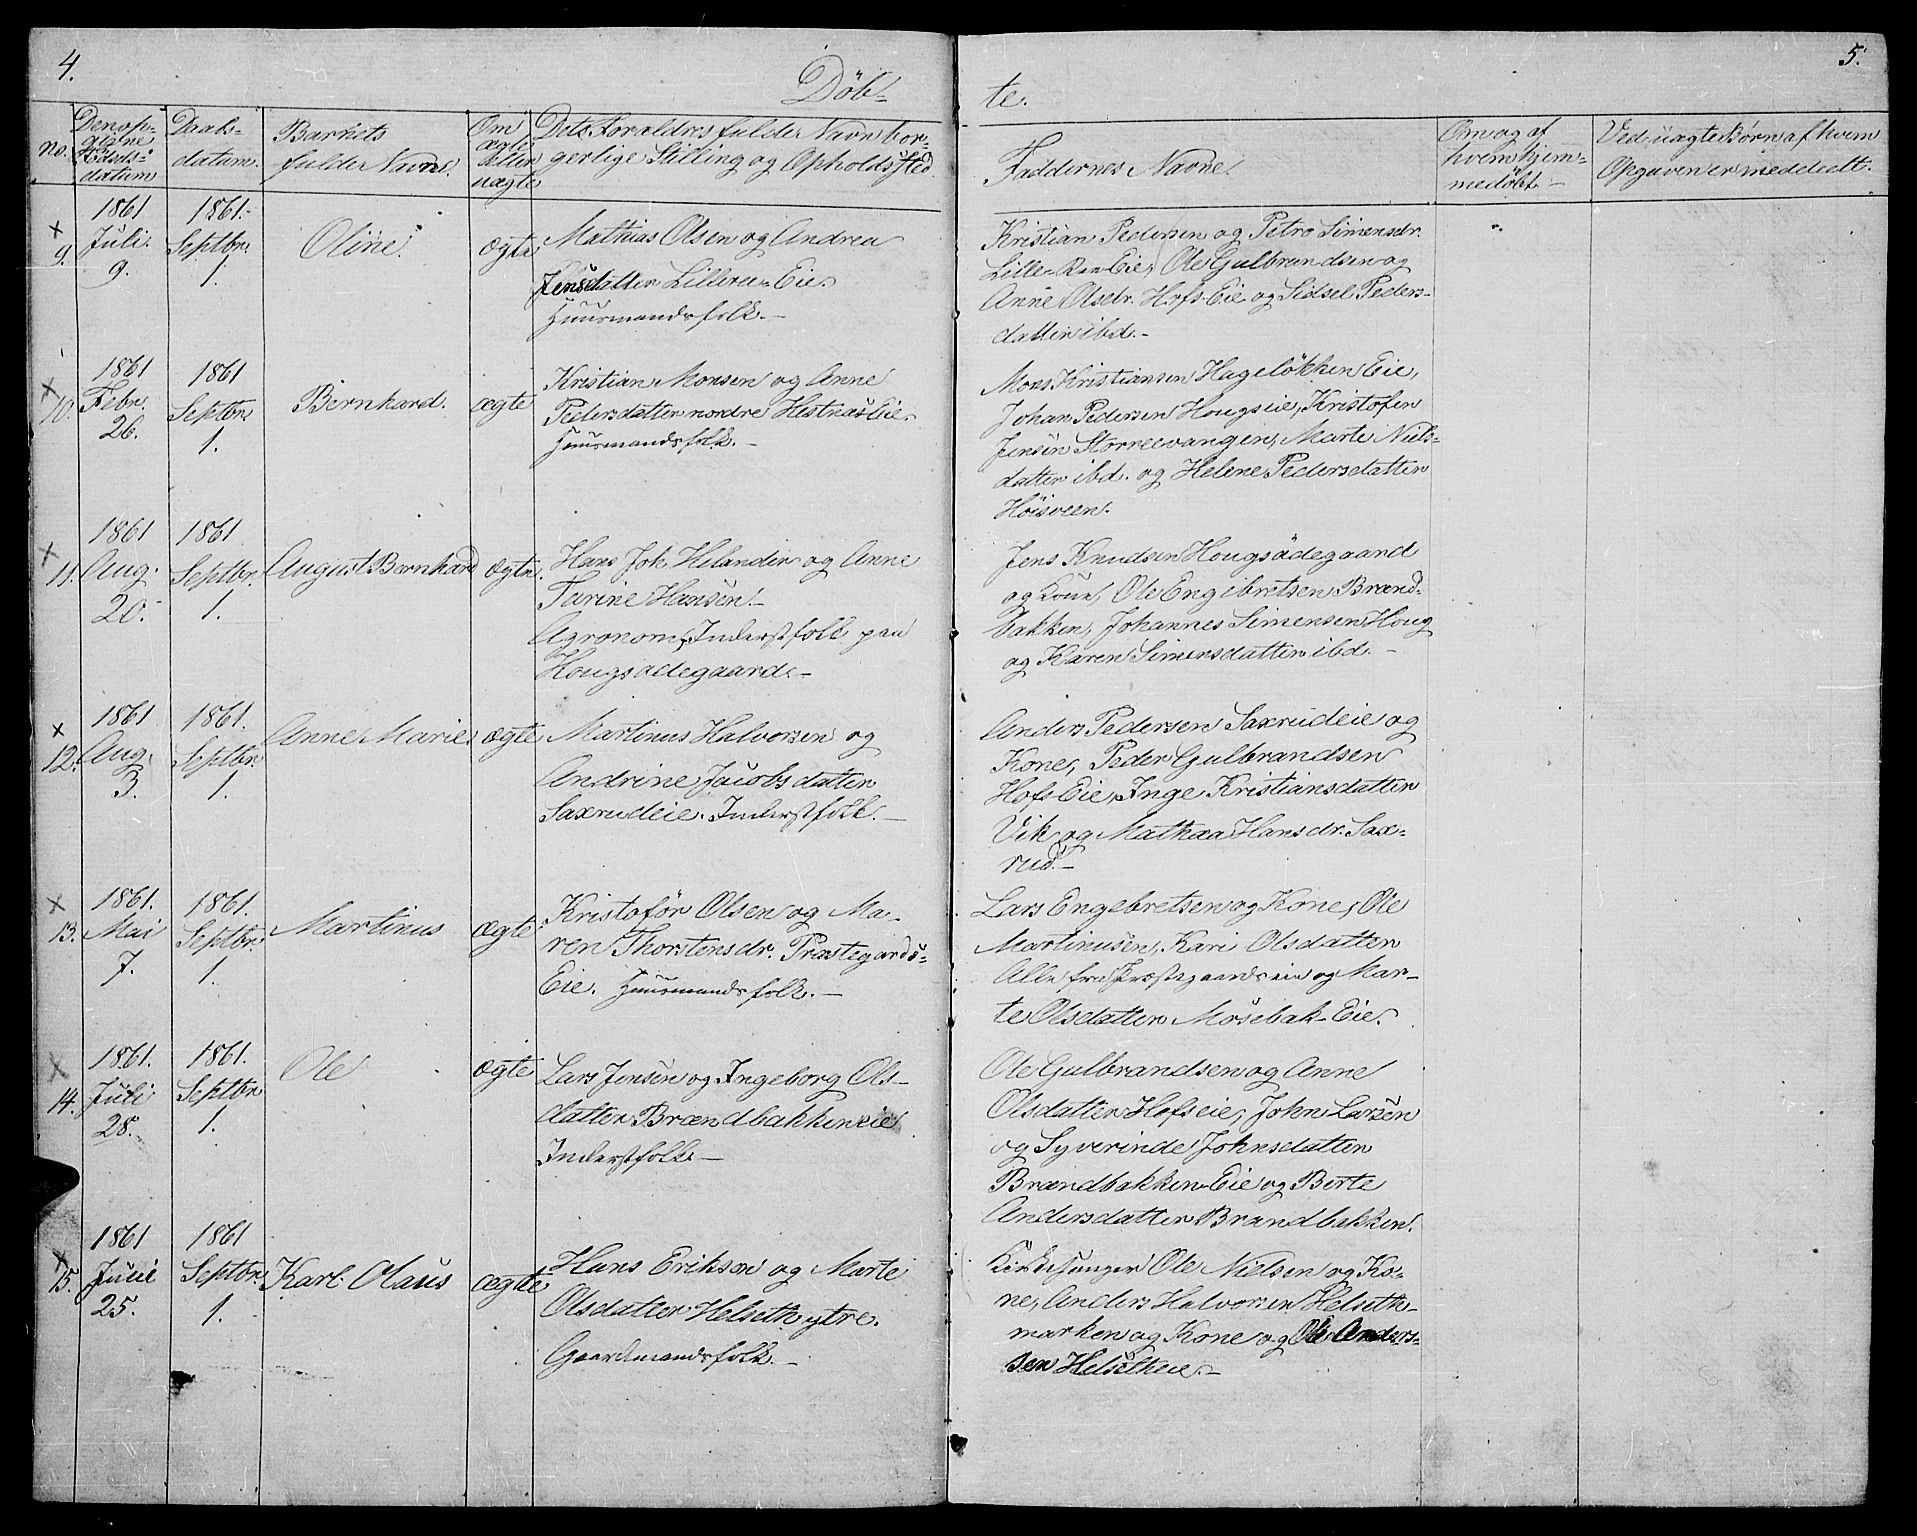 4.
5.
Döb-
te.
no.
Den op-
givne
Föds-
datum
Daabs-
datum.
Barnets
fulde Navn.
Om
ægte
eller
uægte
Dets Forældres fulde Navn bor-
gerlige Stilling og Opholdssted
Faddernes Navne.
Om og af
hvem hjem-
medöbt.-
Ved uægte Börn af hvem
Opgaven er meddeelt.
×
9.
1861
Juli.
9.
1861.
Septbr.
1.
Oline.
ægte
Mathias Olsen og Andrea
Jensdatter Lilleree-Eie.
Huusmandsfolk.-
Kristian Pedersen og Petro Simensdr.
Lille-Ree-Eie, Ole Gulbrandsen og
Anne Olsdr. Hofs-Eie og Sidsel Peders-
datter ibd.-
×
10.
1861
Febr.
26.
1861
Septbr
1.
Bernhard.
ægte
Kristian Monsen og Anne
Pedersdatter nordre Hestnæs Eie.
Huusmandsfolk.-
Mons Kristiansen Hagelökken Eie,
Johan Pedersen Hougseie, Kristofer
Jensen Storreevangen, Marte Niels-
datter ibd. og Helene Pedersdatter
Höisveen.
×
11.
1861
Aug.
20.
1861
Septbr.
1.
August Bernhard
ægte.
Hans Joh. Helander og Anne
Turine Hansen.-
Agronom, Inderstfolk paa
Hougsödegaard.-
Jens Knudsen Hougsödegaard
og Kone, Ole Engebretsen Brænd-
bakken, Johannes Simensen Houg
og Karen Simensdatter ibd.-
×
12.
1861
Aug.
3.
1861.
Septbr.
1.
Anne Marie.
ægte
Martinus Halvorsen og
Andrine Jacobsdatter
Saxrudeie. Inderstfolk.-
Anders Pedersen Saxrudeie og
Kone, Peder Gulbrandsen
Hofs Eie, Inge Kristiansdatter
Vik og Mathea Hansdr. Sax-
rud.-
×
13.
1861.
Mai
7.
1861.
Septbr
1.
Martinus
ægte
Kristoför Olsen og Ma-
ren Thorstensdr. Præstegards-
Eie. Huusmandsfolk.-
Lars Engebretsen og Kone, Ole
Martinusen, Kari Olsdatter
Alle fra Præstegaardseie og Mar-
te Olsdatter Mosebak-Eie.
×
14.
1861.
Juli
28.
1861.
Septbr
1.
Ole
ægte
Lars Jensen og Ingeborg Ols-
datter Brændbakkeneie
Inderstfolk.-
Ole Gulbrandsen og Anne
Olsdatter Hofseie, John Larsen
og Syverinde Johnsdatter
Brændbakken Eie og Berte
Andersdatter Brændbakken.
×
15.
1861
Juli
25.
1861
Septbr.
1.
Karl Olaus
ægte
Hans Eriksen og Marte
Olsdatter Helseth ytre.
Gaardmandsfolk.-
Kirkesanger Ole Nielsen og Ko-
ne, Anders Halvorsen Helseth-
marken og Kone og Ole Anders-
sen Helsetheie.-